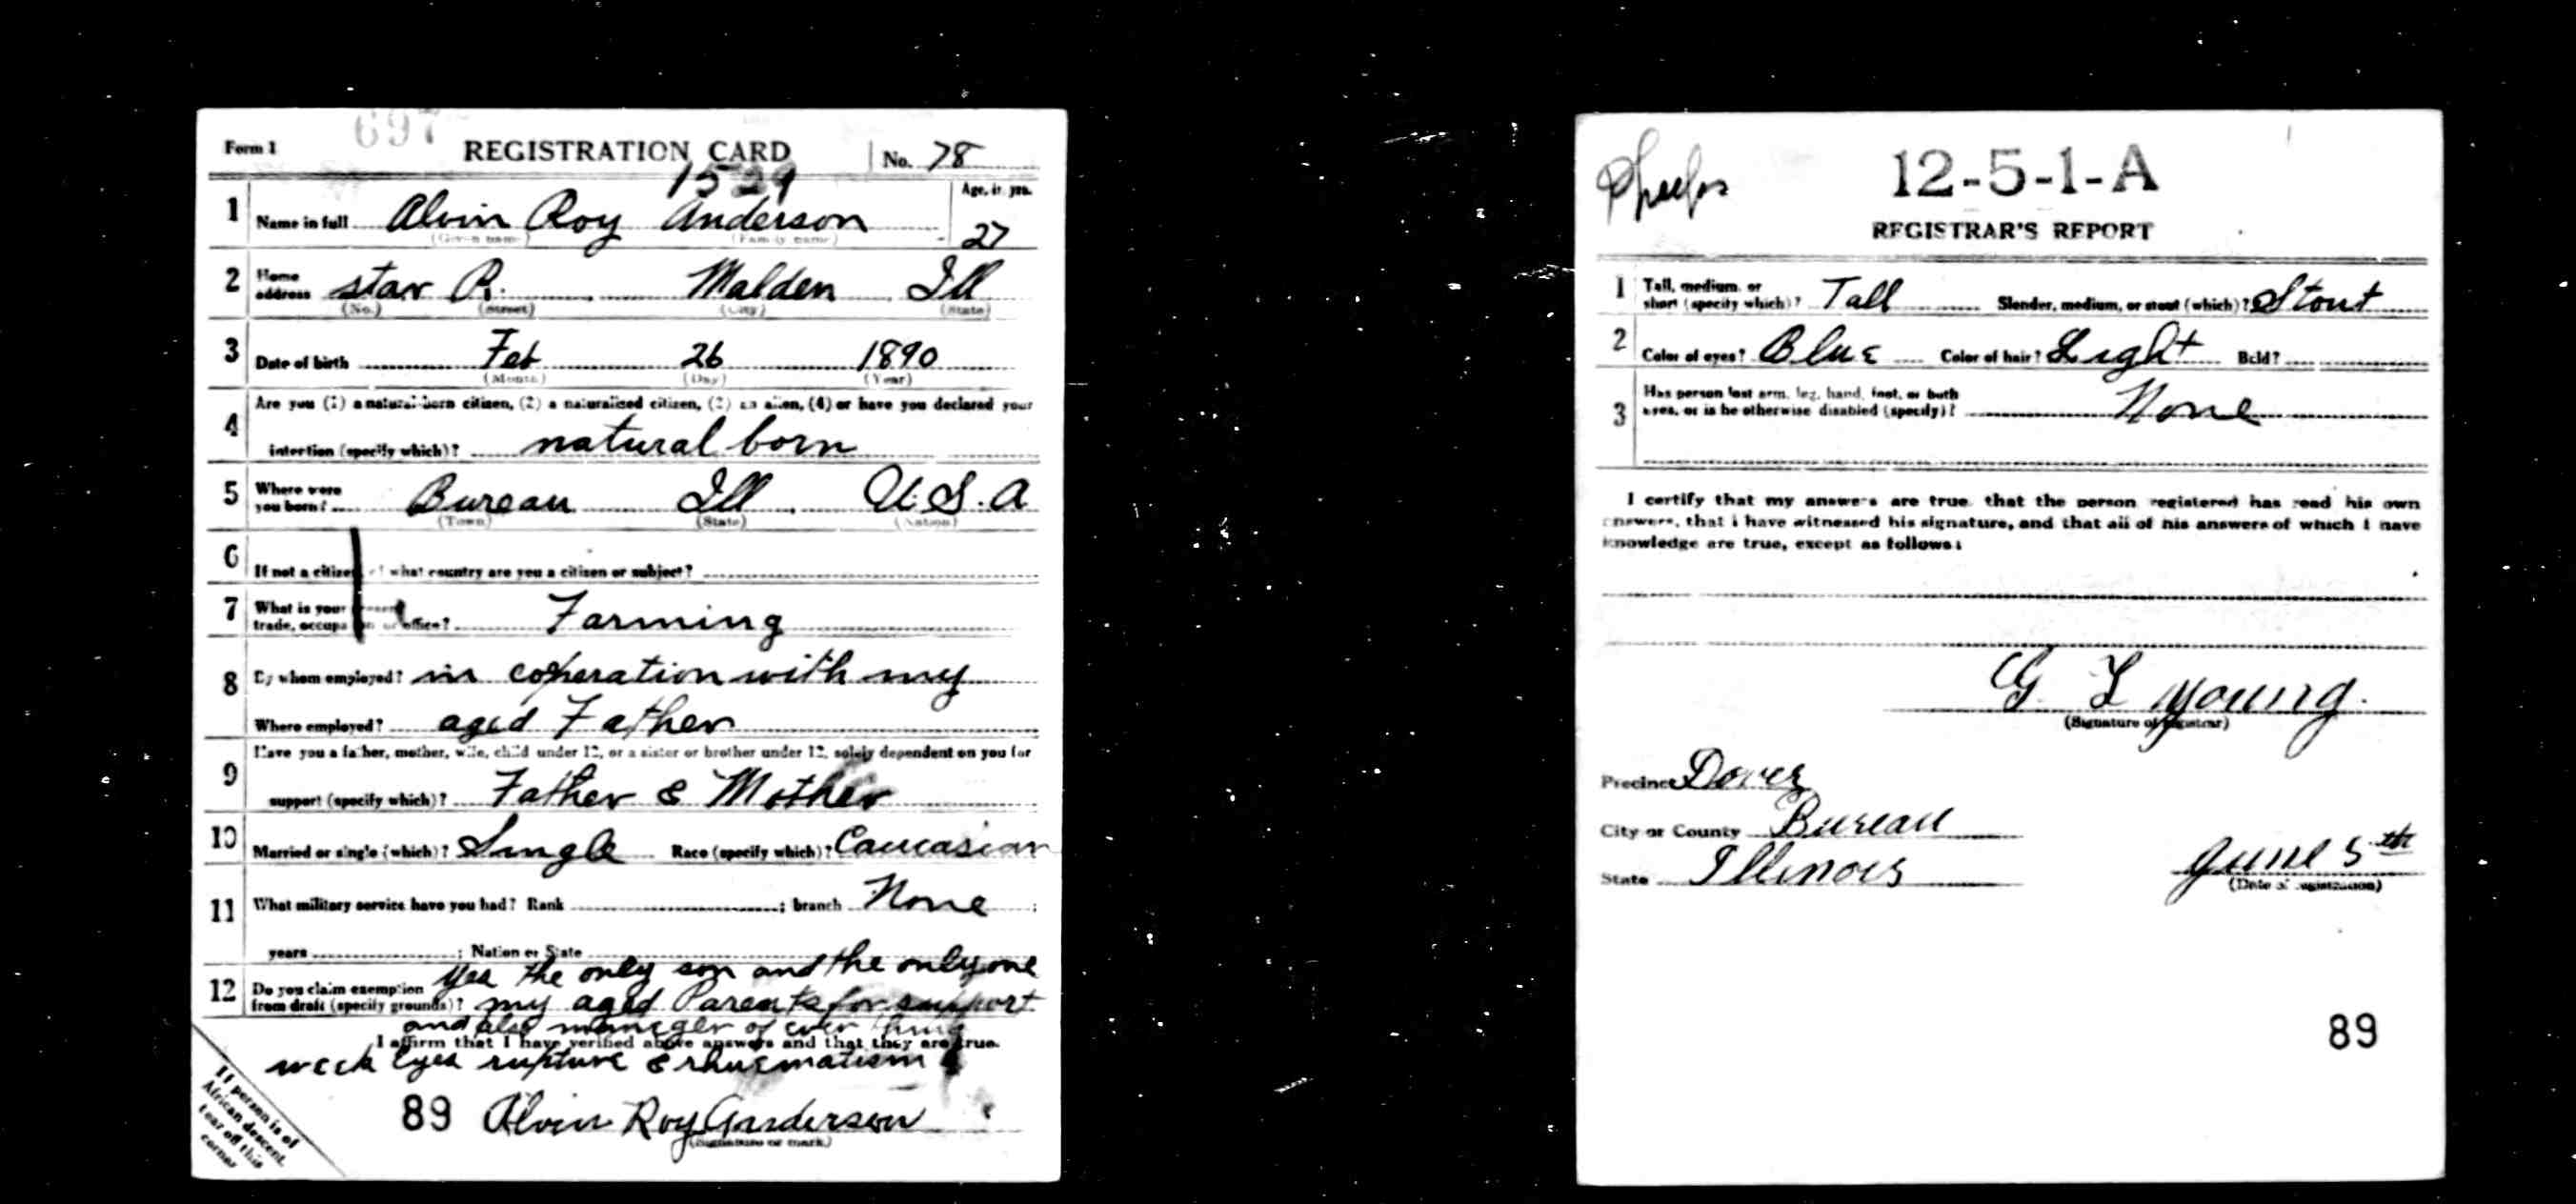 697
Form 1 REGISTRATION CARD No. 78
1529
1 Name in full Alvin Roy Anderson Age, in yrs. 27
(Given name) (Family name)
2 Home address star R. Malden Ill
(No.) (Street) (City) (State)
3 Date of birth Feb 26 1890
(Month) (Day) (Year)
4 Are you (1) a natural-born citizen, (2) a naturalized citizen, (3) an alien, (4) or have you declared your
intention (specify which)? natural born
5 Where were you born? Bureau Ill U.S.A
(Town) (State) (Nation)
6 If not a citizen of what country are you a citizen or subject?
7 What is your present trade, occupation or office? Farming
8 By whom employed? in coperation with my
Where employed? aged Father
9 Have you a father, mother, wife, child under 12, or a sister or brother under 12, solely dependent on you for
support (specify which)? Father & Mother
10 Married or single (which)? Single Race (specify which)? Caucasian
11 What military service have you had? Rank ; branch None ;
years ; Nation or State
12 Do you claim exemption from draft (specify grounds)? Yes the only son and the only one
my aged Parents for support
and also maneger of ever thing
I affirm that I have verified above answers and that they are true.
week Eyes rupture & rhuematism
89 Alvin Roy Anderson
(Signature or mark)
If person is of
African descent,
tear off this
corner
12-5-1-A
REGISTRAR'S REPORT
1 Tall, medium, or short (specify which)? Tall Slender, medium, or stout (which)? Stout
2 Color of eyes? Blue Color of hair? Light Bald?
3 Has person lost arm, leg, hand, foot, or both
eyes, or is he otherwise disabled (specify)? None
I certify that my answers are true, that the person registered has read his own
answers, that I have witnessed his signature, and that all of his answers of which I have
knowledge are true, except as follows:
G L Young.
(Signature of registrar)
Precinct Dover
City or County Bureau
State Illinois June 5th
(Date of registration)
89